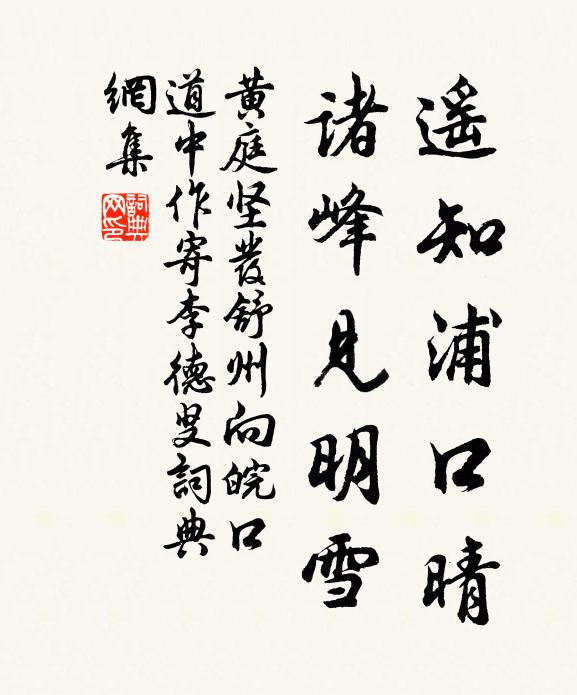 遥知浦口晴
諸峰見明雪
黄庭坚發舒州向皖口
道中作寄李德叟詞典
網集
詞典
网印